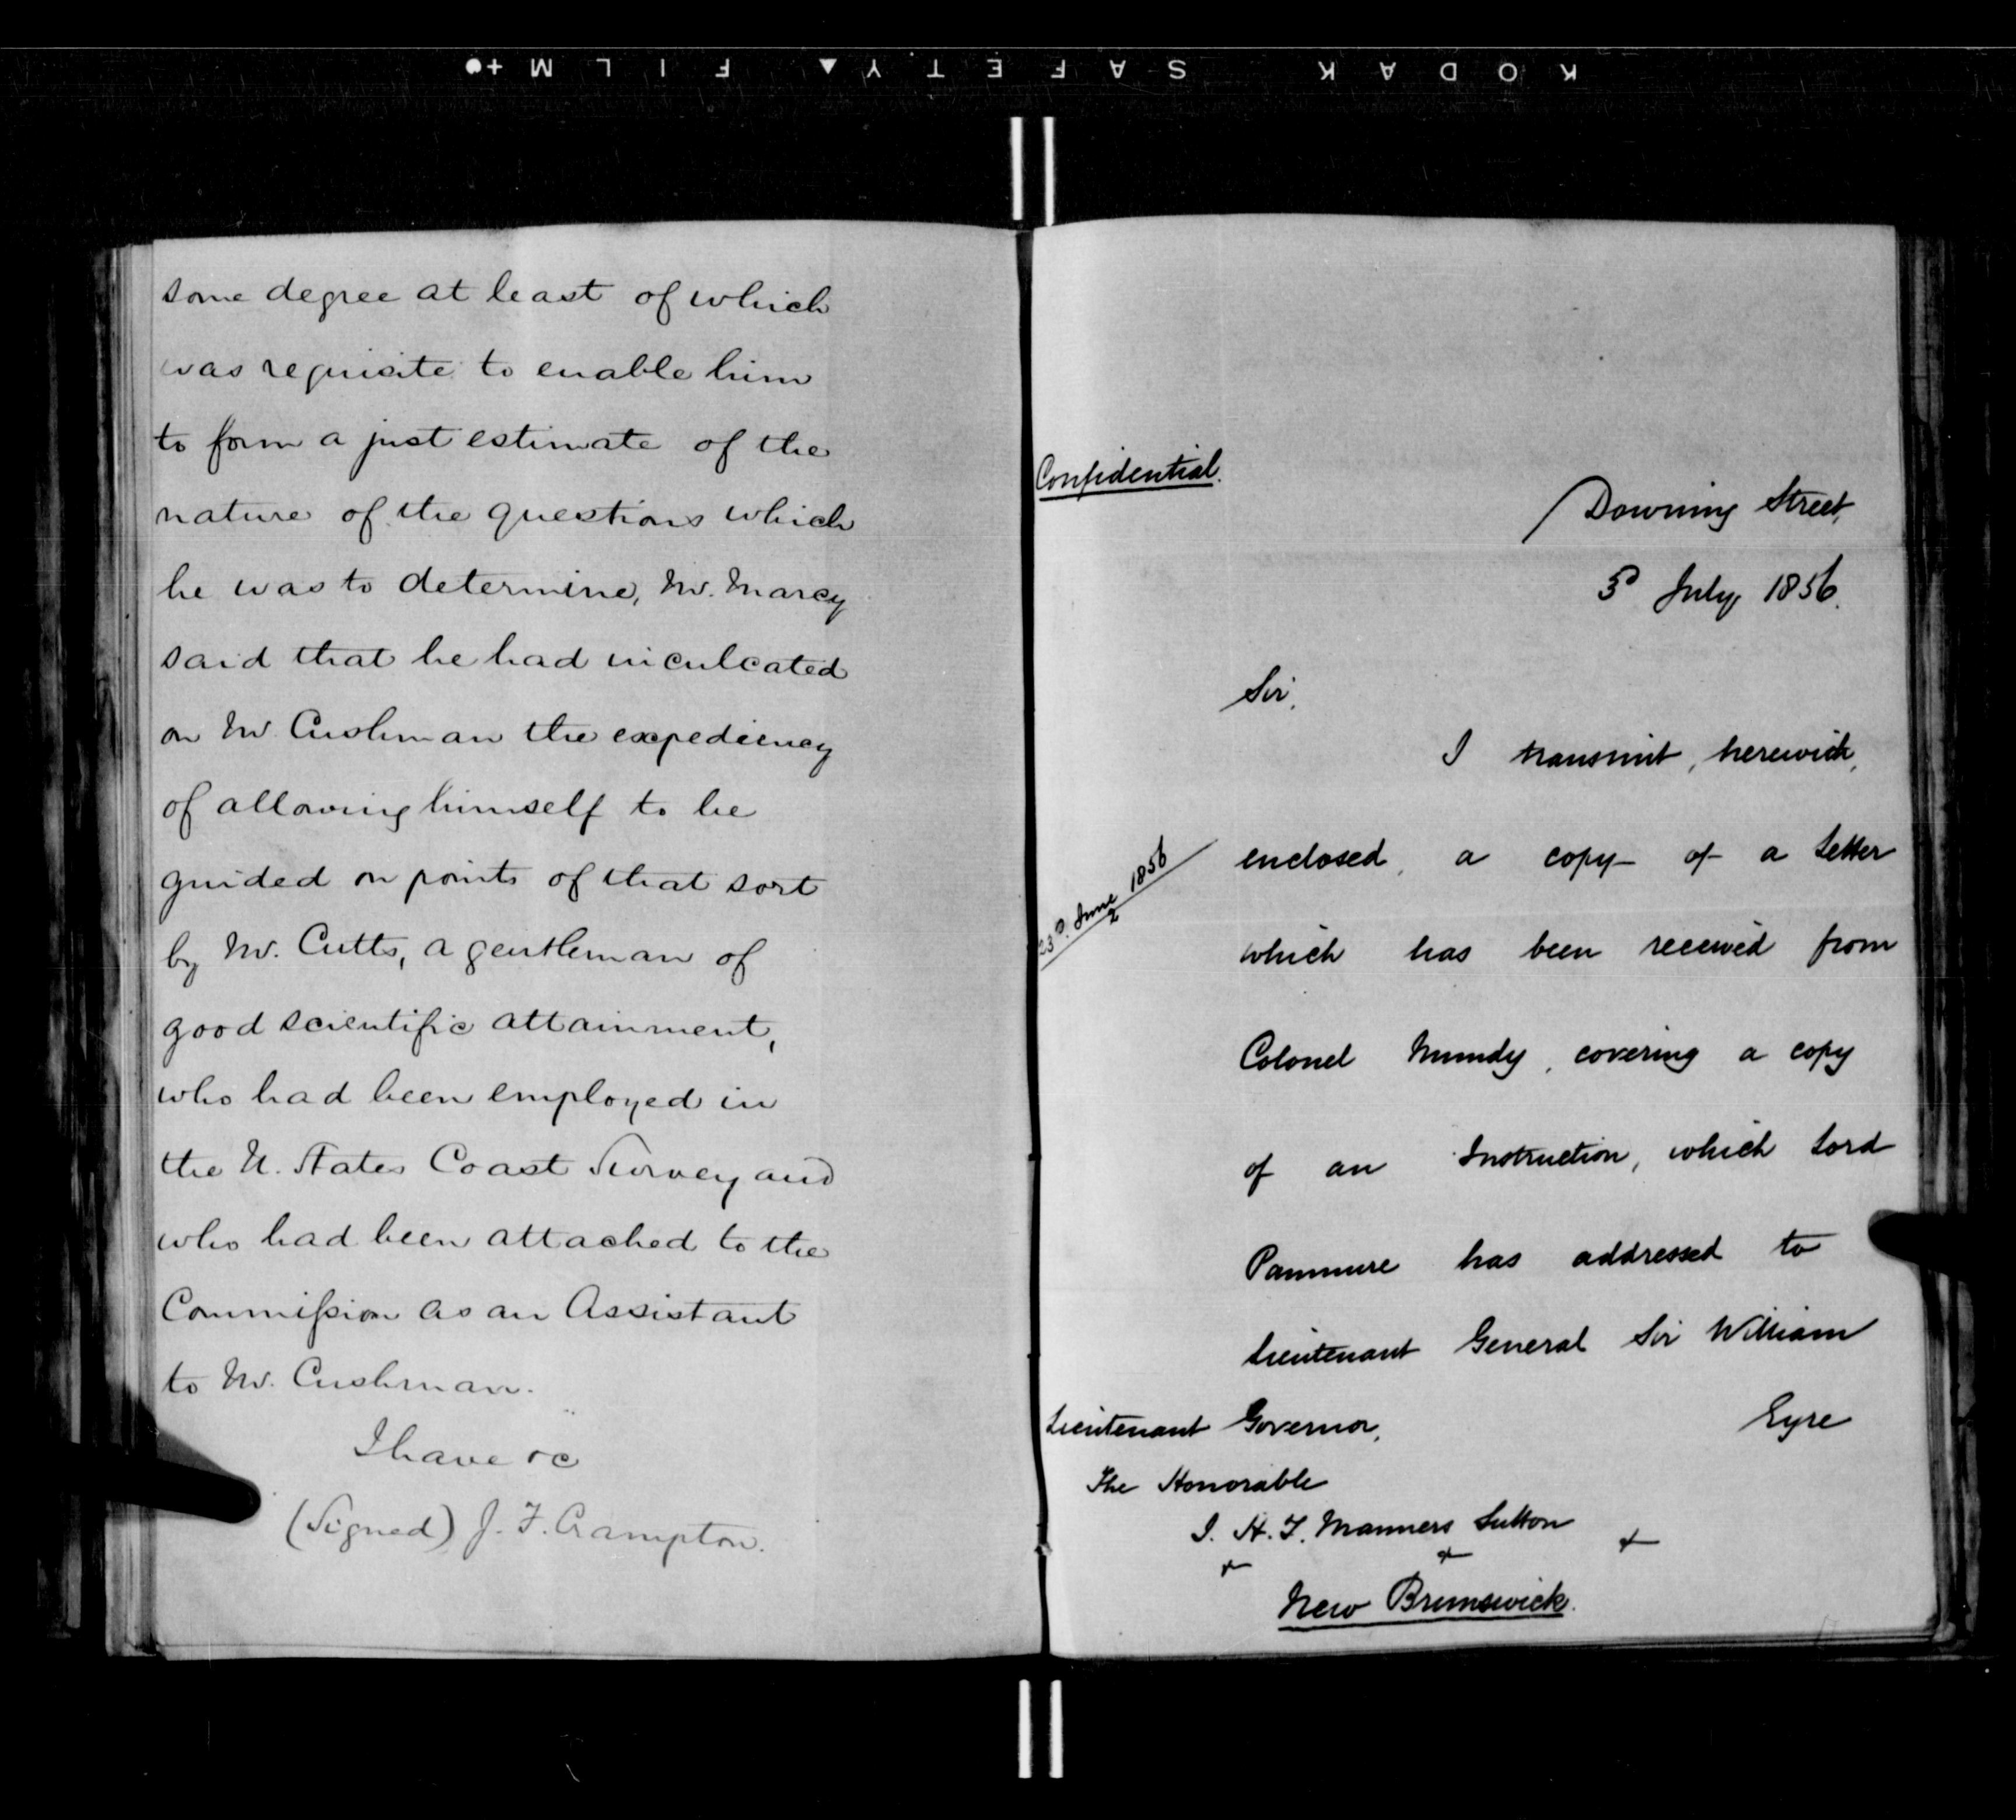 KODAK SAFETY FILM
some degree at least of which
was requisite to enable him
to form a just estimate of the
nature of the questions which
he was to determine, Mr. Marcy
said that he had inculcated
on Mr Cushman the expediency
of allowing himself to be
guided on points of that sort
by Mr. Cutts, a gentleman of
good scientific attainment,
who had been employed in
the U. States Coast Survey and
who had been attached to the
Commission as an Assistant
to Mr. Cushman.
I have &c
(Signed) J. F. Crampton.
Confidential.
Downing Street,
5 July 1856.
Sir,
I transmit, herewith,
23d. June 1856
enclosed, a copy of a Letter
which has been received from
Colonel Mundy, covering a copy
of an Instruction, which Lord
Panmure has addressed to
Lieutenant General Sir William
Eyre
Lieutenant Governor,
The Honorable
J. H. T. Manners Sutton
&c &c &c
New Brunswick.